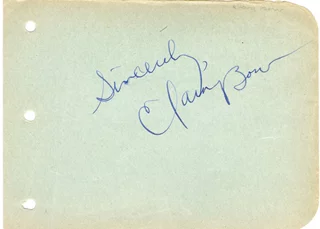 Sincerely,
Clara Bow